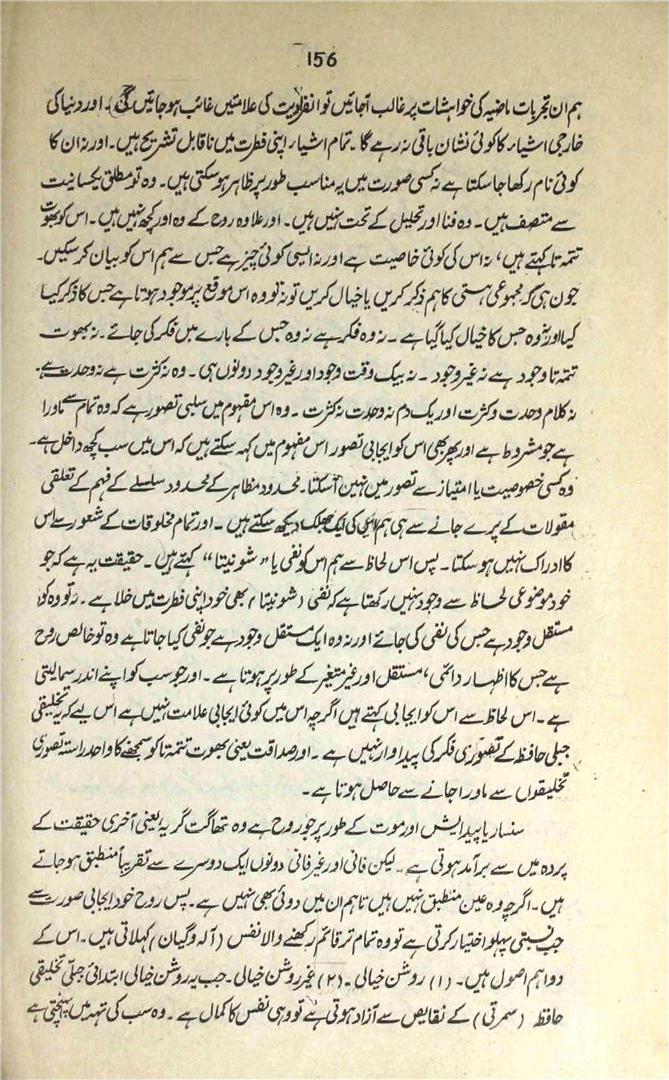 156
ہم ان تجربات ماضیہ کی خواہشات پر غالب آجائیں تو انفرادیت کی علامتیں غائب ہوجائیں گی۔ اور دنیا کی
خارجی اشیاء کا کوئی نشان باقی نہ رہے گا۔ تمام اشیاء اپنی فطرت میں ناقابل تشریح ہیں۔ اور نہ ان کا
کوئی نام رکھا جاسکتا ہے نہ کسی صورت میں یہ مناسب طور پر ظاہر ہوسکتی ہیں۔ وہ تو مطلق یکسانیت
سے متصف ہیں۔ وہ فنا اور تحلیل کے تحت نہیں ہیں۔ اور علاوہ روح کے وہ اور کچھ نہیں ہیں۔ اس کو بھوت
تتھتا کہتے ہیں، نہ اس کی کوئی خاصیت ہے اور نہ ایسی کوئی چیز ہے جس سے ہم اس کو بیان کرسکیں۔
جون ہی کہ مجموعی ہستی کا ہم ذکر کریں یا خیال کریں تو نہ تو وہ اس موقع پر موجود ہوتا ہے جس کا ذکر کیا
گیا اور نہ وہ جس کا خیال کیا گیا ہے۔ نہ وہ فکر ہے نہ وہ جس کے بارے میں فکر کی جائے۔ نہ بھوت
تتھتا وجود ہے نہ غیر وجود۔ نہ بیک وقت وجود اور غیر وجود دونوں ہی۔ وہ نہ کثرت ہے نہ وحدت ہے۔
نہ کلام وحدت و کثرت اور یک دم نہ وحدت نہ کثرت۔ وہ اس مفہوم میں سلبی تصور ہے کہ وہ تمام سے ماورا
ہے جو مشروط ہے اور پھر بھی اس کو ایجابی تصور اس مفہوم میں کہہ سکتے ہیں کہ اس میں سب کچھ داخل ہے۔
وہ کسی خصوصیت یا امتیاز سے تصور میں نہیں آسکتا۔ محدود مظاہر کے محدود سلسلے کے فہم کے تعلقی
مقولات کے پرے جانے سے ہی ہم اس کی ایک جھلک دیکھ سکتے ہیں۔ اور تمام مخلوقات کے شعور سے اس
کا ادراک نہیں ہوسکتا۔ پس اس لحاظ سے ہم اس کو نفی یا "شونیتا" کہتے ہیں۔ حقیقت یہ ہے کہ جو
خود موضوعی لحاظ سے وجود نہیں رکھتا ہے کہ نفی (شونیتا) بھی خود اپنی فطرت میں خلا ہے۔ نہ تو وہ کوئی
مستقل وجود ہے جس کی نفی کی جائے اور نہ وہ ایک مستقل وجود ہے جو نفی کیا جاتا ہے وہ تو خالص روح
ہے جس کا اظہار دائمی، مستقل اور غیر متغیر کے طور پر ہوتا ہے۔ اور جو سب کو اپنے اندر سمالیتی
ہے۔ اس لحاظ سے اس کو ایجابی کہتے ہیں اگرچہ اس میں کوئی ایجابی علامت نہیں ہے اس لیے کہ یہ تخلیقی
جبلی حافظ کے تصوری فکر کی پیداوار نہیں ہے۔ اور صداقت یعنی بھوت تتھتا کو سمجھنے کا واحد راستہ تصوری
تخلیقوں سے ماورا جانے سے حاصل ہوتا ہے۔
سنسار یا پیدایش اور موت کے طور پر جو روح ہے وہ تتھاگت گربہ یعنی آخری حقیقت کے
پردہ میں سے برآمد ہوتی ہے۔ لیکن فانی اور غیر فانی دونوں ایک دوسرے سے تقریباً منطبق ہوجاتے
ہیں۔ اگرچہ وہ عین منطبق نہیں ہیں تاہم ان میں دوئی بھی نہیں ہے۔ پس روح خود ایجابی صورت سے
جب نسبتی پہلو اختیار کرتی ہے تو وہ تمام تر قائم رکھنے والا نفس (آلہ وگیان) کہلاتی ہیں۔ اس کے
دو اہم اصول ہیں۔ (۱) روشن خیالی۔ (۲) غیر روشن خیالی۔ جب یہ روشن خیالی ابتدائی جبلی تخلیقی
حافظ (سمرتی) کے نقایص سے آزاد ہوتی ہے تو وہی نفس کا کمال ہے۔ وہ سب کی تہہ میں پہنچتی ہے